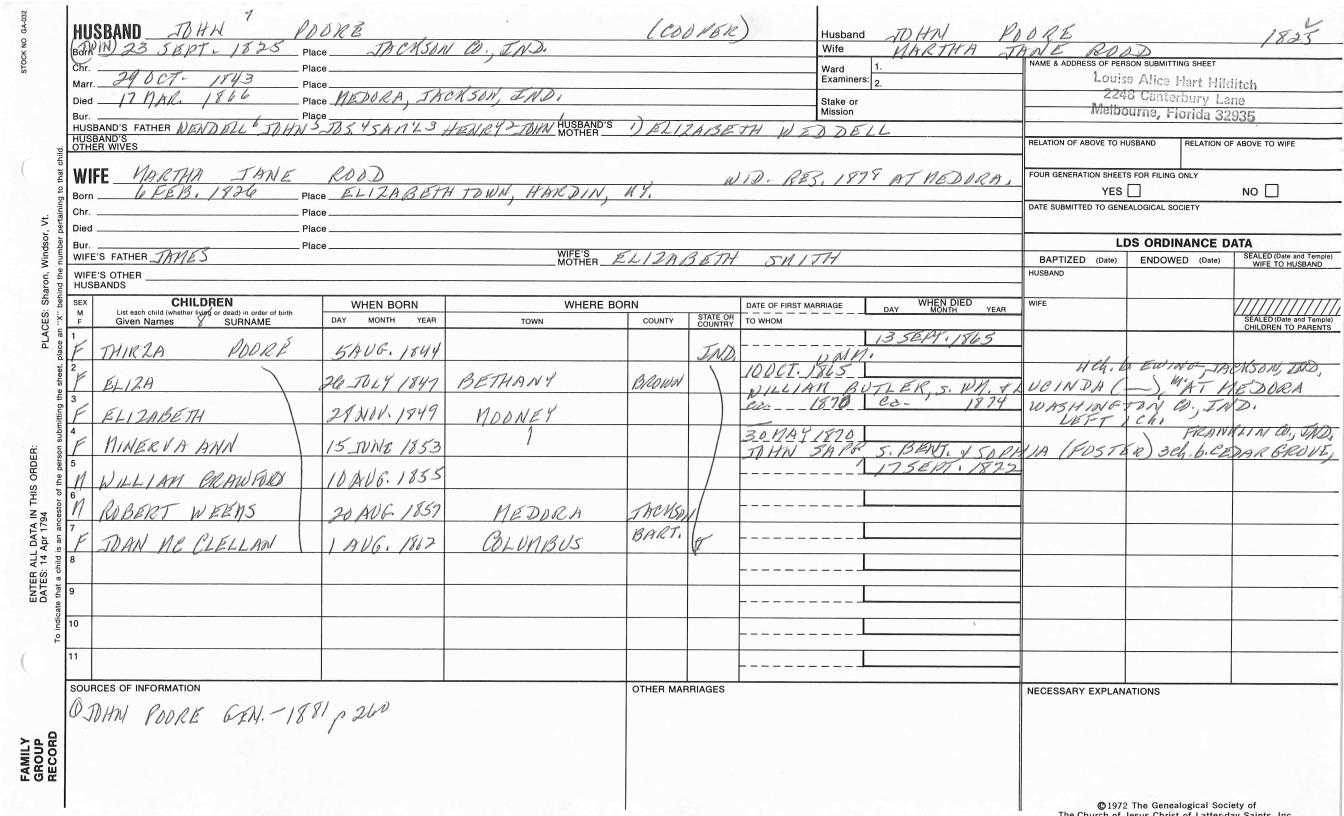 STOCK NO. GA-032
PLACES: Sharon, Windsor, Vt.
ENTER ALL DATA IN THIS ORDER:
DATES: 14 Apr 1794
To indicate that a child is an ancestor of the person submitting the sheet, place an "X" behind the number pertaining to that child.
FAMILY GROUP RECORD
HUSBAND JOHN 7 POORE (COOPER)
Born (TWIN) 23 SEPT. 1825 Place JACKSON CO., IND.
Chr. Place
Marr. 29 OCT. 1843 Place
Died 17 MAR. 1866 Place MEDORA, JACKSON, IND.
Bur. Place
HUSBAND'S FATHER WENDELL 6 JOHN 5 JOS 4 SAM'L 3 HENRY 2 JOHN 1 HUSBAND'S MOTHER 1) ELIZABETH WEDDELL
HUSBAND'S OTHER WIVES
WIFE MARTHA JANE ROOD WID. RES. 1879 AT MEDORA.
Born 6 FEB. 1826 Place ELIZABETH TOWN, HARDIN, KY.
Chr. Place
Died Place
Bur. Place
WIFE'S FATHER JAMES WIFE'S MOTHER ELIZABETH SMITH
WIFE'S OTHER HUSBANDS
Husband JOHN POORE 1825
Wife MARTHA JANE ROOD
Ward Examiners: 1.
2.
Stake or Mission
NAME & ADDRESS OF PERSON SUBMITTING SHEET
Louise Alice Hart Hilditch
2248 Canterbury Lane
Melbourne, Florida 32935
RELATION OF ABOVE TO HUSBAND RELATION OF ABOVE TO WIFE
FOUR GENERATION SHEETS FOR FILING ONLY
YES NO
DATE SUBMITTED TO GENEALOGICAL SOCIETY
LDS ORDINANCE DATA
BAPTIZED (Date) ENDOWED (Date) SEALED (Date and Temple) WIFE TO HUSBAND
HUSBAND
WIFE
SEALED (Date and Temple) CHILDREN TO PARENTS
SEX M F CHILDREN WHEN BORN WHERE BORN DATE OF FIRST MARRIAGE WHEN DIED
List each child (whether living or dead) in order of birth
Given Names 8 SURNAME DAY MONTH YEAR TOWN COUNTY STATE OR COUNTRY TO WHOM DAY MONTH YEAR
1 F THIRZA POORE 5 AUG. 1844 IND. UNM. 13 SEPT. 1865
2 F ELIZA 26 JULY 1847 BETHANY BROWN 10 OCT. 1865 4 ch. b. EWING, JACKSON, IND.
WILLIAM BUTLER, S. WM. & LUCINDA (—), m. AT MEDORA
3 F ELIZABETH 28 NOV. 1849 MOONEY ca. 1870 ca. 1874 WASHINGTON CO., IND.
LEFT 1 ch.
4 F MINERVA ANN 15 JUNE 1853 30 MAY 1870 FRANKLIN CO., IND.
JOHN SAPP S. BENJ. & SOPHIA (FOSTER) 3 ch. b. CEDAR GROVE,
5 M WILLIAM CRAWFORD 10 AUG. 1855 17 SEPT. 1822
6 M ROBERT WEEMS 20 AUG. 1857 MEDORA JACKSON
7 F JOAN MC CLELLAN 1 AUG. 1862 COLUMBUS BART.
8
9
10
11
SOURCES OF INFORMATION
① JOHN POORE GEN. - 1881 p 260
OTHER MARRIAGES
NECESSARY EXPLANATIONS
©1972 The Genealogical Society of
The Church of Jesus Christ of Latter-day Saints, Inc.